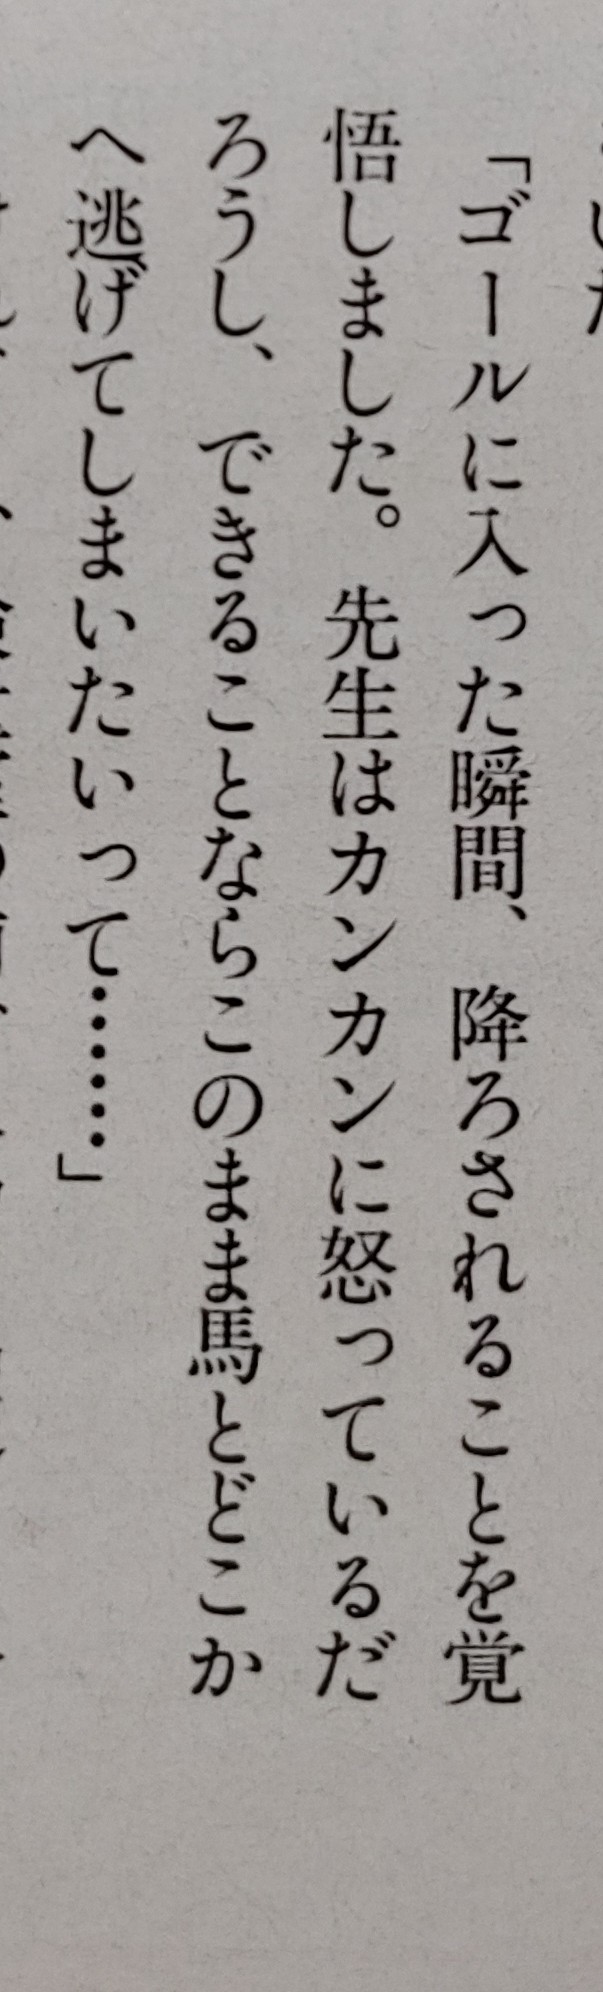 「ゴールに入った瞬間、降ろされることを覚
悟しました。先生はカンカンに怒っているだ
ろうし、できることならこのまま馬とどこか
へ逃げてしまいたいって……」